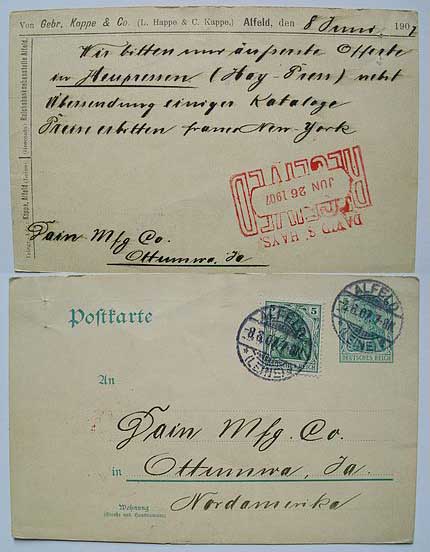 Von Gebr. Koppe & Co. (L. Happe & C. Kappe.) Alfeld, den 8 Juni 1907
Wir bitten um äusserste Offerte
in Heupressen (Hay-Press) nebst
Übersendung einiger Kataloge
Preise erbitten franco New-York
RECEIVED
JUN 26 1907
DAVID S. HAYS.
Dain Mfg Co.
Ottumwa, Ia
Postkarte
ALFELD
(LEINE)
5
ALFELD
(LEINE)
DEUTSCHES REICH
An
Dain Mfg. Co.
in Ottumwa, Ia.
Nordamerika
Wohnung
(Straße und Hausnummer)